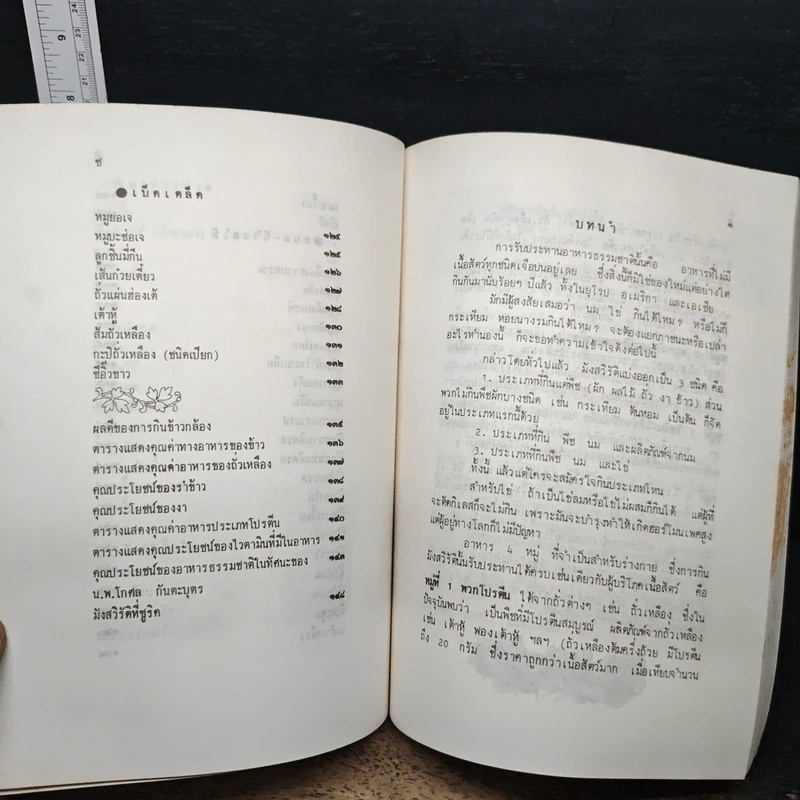 ซ
●เบ็ดเตล็ด
หมูยอเจ ๑๒๕
หมูบะช่อเจ ๑๒๕
ลูกชิ้นมี่กึน ๑๒๖
เส้นก๋วยเตี๋ยว ๑๒๗
ถั่วแผ่นฮ่องเต้ ๑๒๘
เต้าหู้ ๑๓๐
ส้มถั่วเหลือง ๑๓๑
กะปิถั่วเหลือง (ชนิดเปียก) ๑๓๒
ซีอิ๊วขาว ๑๓๓
ผลดีของการกินข้าวกล้อง ๑๓๕
ตารางแสดงคุณค่าทางอาหารของข้าว ๑๓๖
ตารางแสดงคุณค่าอาหารของถั่วเหลือง ๑๓๗
คุณประโยชน์ของรำข้าว ๑๓๘
คุณประโยชน์ของงา ๑๓๙
ตารางแสดงคุณค่าอาหารประเภทโปรตีน ๑๔๐
ตารางแสดงคุณประโยชน์ของไวตามินที่มีในอาหาร ๑๔๑
คุณประโยชน์ของอาหารธรรมชาติในทัศนะของ ๑๔๓
น.พ.โกศล กันตะบุตร
มังสวิรัติที่ซูริค ๑๔๘
๑
บทนำ
การรับประทานอาหารธรรมชาตินั้นคือ อาหารที่ไม่มี
เนื้อสัตว์ทุกชนิดเจือปนอยู่เลย ซึ่งสิ่งนี้ก็มิใช่ของใหม่แต่อย่างใด
กินกันมานับร้อยๆ ปีแล้ว ทั้งในยุโรป อเมริกา และเอเชีย
มักมีผู้สงสัยเสมอว่า นม ไข่ กินได้ไหม? หรือไม่ก็
กระเทียม หอยนางรมกินได้ไหม? จะต้องแยกภาชนะหรือเปล่า
อะไรทำนองนี้ ก็จะขอทำความเข้าใจดังต่อไปนี้
กล่าวโดยทั่วไปแล้ว มังสวิรัติแบ่งออกเป็น 3 ชนิด คือ
1. ประเภทที่กินแต่พืช (ผัก ผลไม้ ถั่ว งา ข้าว) ส่วน
พวกไม่กินพืชผักบางชนิด เช่น กระเทียม ต้นหอม เป็นต้น ก็จัด
อยู่ในประเภทแรกนี้ด้วย
2. ประเภทที่กิน พืช นม และผลิตภัณฑ์จากนม
3. ประเภทที่กินพืช นม และไข่
ทั้งนี้ แล้วแต่ใครจะสมัครใจกินประเภทไหน
สำหรับไข่ ถ้าเป็นไข่ลมหรือไข่ไม่ผสมก็กินได้ แต่ผู้ที่
จะตัดกิเลสก็จะไม่กิน เพราะมันจะบำรุงทำให้เกิดฮอร์โมนเพศสูง
แต่ผู้อยู่ทางโลกก็ไม่มีปัญหา
อาหาร 4 หมู่ ที่จำเป็นสำหรับร่างกาย ซึ่งการกิน
มังสวิรัตินั้นรับประทานได้ครบเช่นเดียวกับผู้บริโภคเนื้อสัตว์ คือ
หมู่ที่ 1 พวกโปรตีน ได้จากถั่วต่างๆ เช่น ถั่วเหลือง ซึ่งใน
ปัจจุบันพบว่า เป็นพืชที่มีโปรตีนสมบูรณ์ ผลิตภัณฑ์จากถั่วเหลือง
เช่น เต้าหู้ ฟองเต้าหู้ ฯลฯ (ถั่วเหลืองต้มครึ่งถ้วย มีโปรตีน
ถึง 20 กรัม ซึ่งราคาถูกกว่าเนื้อสัตว์มาก เมื่อเทียบจำนวน